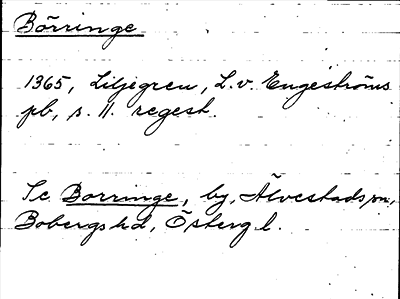 Börringe
1365, Liljegren, L. v. Engeströms
pb, s. 11. regest.
Se Borringe, by, Älvestads sn,
Bobergs hd, Österg l.